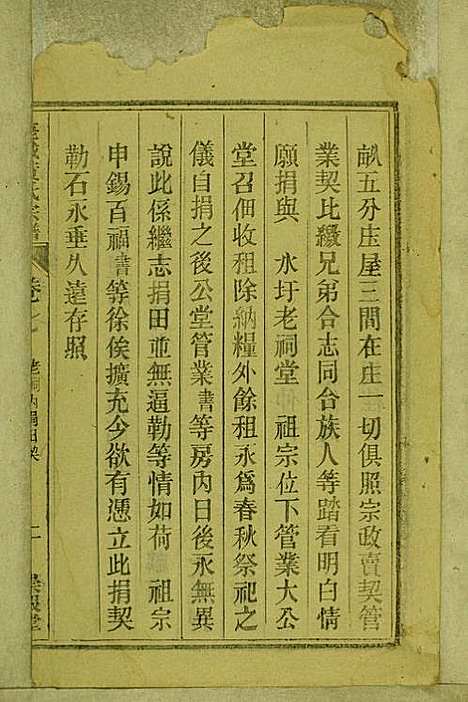 畝五分庄屋三間在庄一切俱照宗政賣契管
業契比繳兄弟合志同台族人等踏看明白情
願捐與 水圩老祠堂 祖宗位下管業大公
堂召佃收租除納糧外餘租永爲春秋祭祀之
儀自捐之後公堂管業書等房內日後永無異
說此係繼志捐田並無逼勒等情如荷 祖宗
申錫百福書等徐俟擴充今欲有憑立此捐契
勒石永垂久遠存照
氏宗譜 卷 老祠內捐田契 一